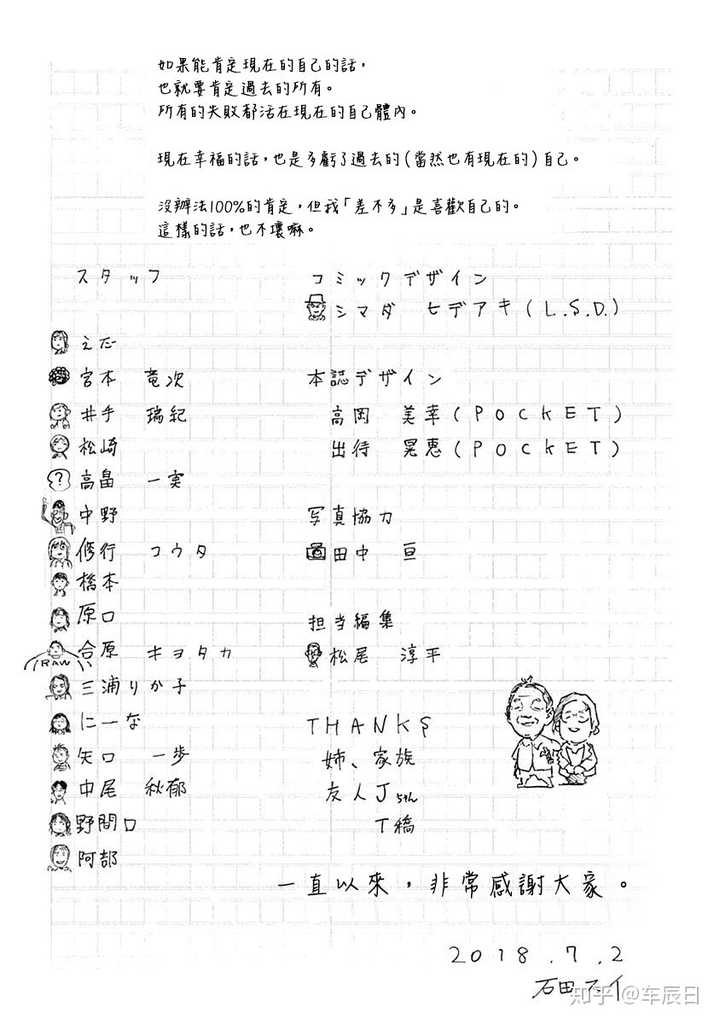 如果能肯定現在的自己的話，
也就要肯定過去的所有。
所有的失敗都活在現在的自己體內。
現在幸福的話，也是多虧了過去的（當然也有現在的）自己。
沒辦法100%的肯定，但我「差不多」是喜歡自己的。
這樣的話，也不壞嘛。
スタッフ
えだ
宮本 竜次
井手 瑞紀
松崎
?
高畠 一実
中野
修行 コウタ
橋本
原口
合原 キヨタカ
RAW
三浦りか子
にーな
矢口 一歩
中尾 秋郁
野間口
阿部
コミックデザイン
シマダ ヒデアキ(L.S.D.)
本誌デザイン
高岡 美幸(POCKET)
出待 晃恵(POCKET)
写真協力
田中 亘
担当編集
松尾 淳平
THANKS
姉、家族
友人J
T稿
一直以來，非常感謝大家。
2018.7.2
石田スイ
知乎 @车辰日